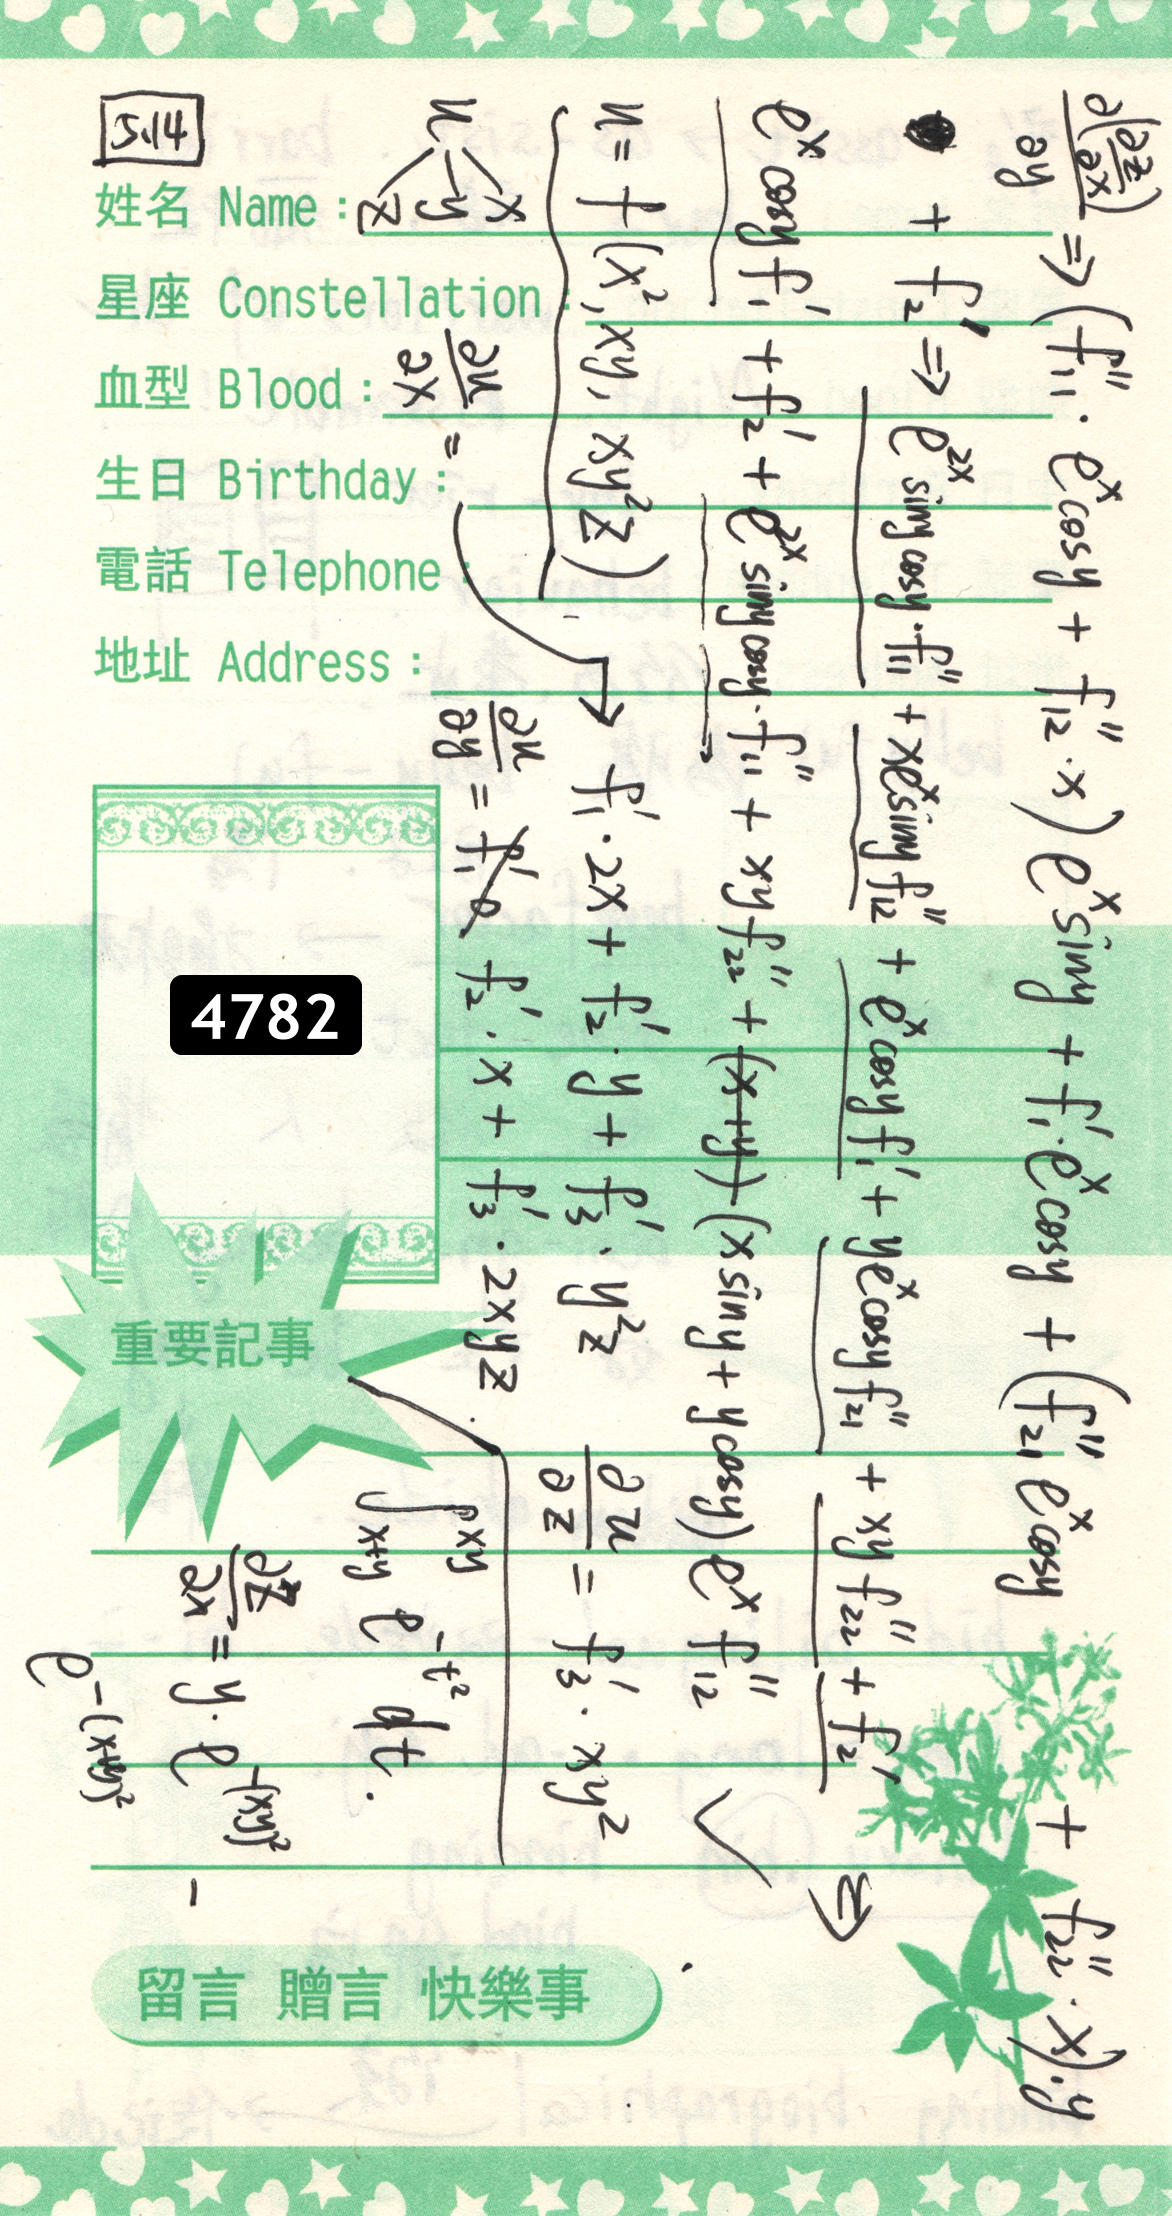 5.14
姓名 Name :
星座 Constellation :
血型 Blood :
生日 Birthday :
電話 Telephone :
地址 Address :
4782
重要記事
留言 贈言 快樂事
∂(∂z/∂x)/∂y ⇒ (f₁₁″·eˣcosy + f₁₂″·x) eˣsiny + f₁′·eˣcosy + (f₂₁″eˣcosy + f₂₂″·x)·y
+ f₂′ ⇒ e²ˣsinycosy·f₁₁″ + xeˣsinyf₁₂″ + eˣcosyf₁′ + yeˣcosyf₂₁″ + xyf₂₂″ + f₂′ ⇒
eˣcosyf₁′ + f₂′ + e²ˣsinycosy·f₁₁″ + xyf₂₂″ + (x+y) (xsiny + ycosy) eˣf₁₂″
u = f(x², xy, xy²z)
u x y z
∂u/∂x = f₁′·2x + f₂′·y + f₃′·y²z
∂u/∂y = f₁′ f₂′·x + f₃′·2xyz.
∂u/∂z = f₃′·xy²
∫ₓ₊ᵧ^xy e^-t² dt.
∂z/∂x = y·e^-(xy)² -
e^-(x+y)²